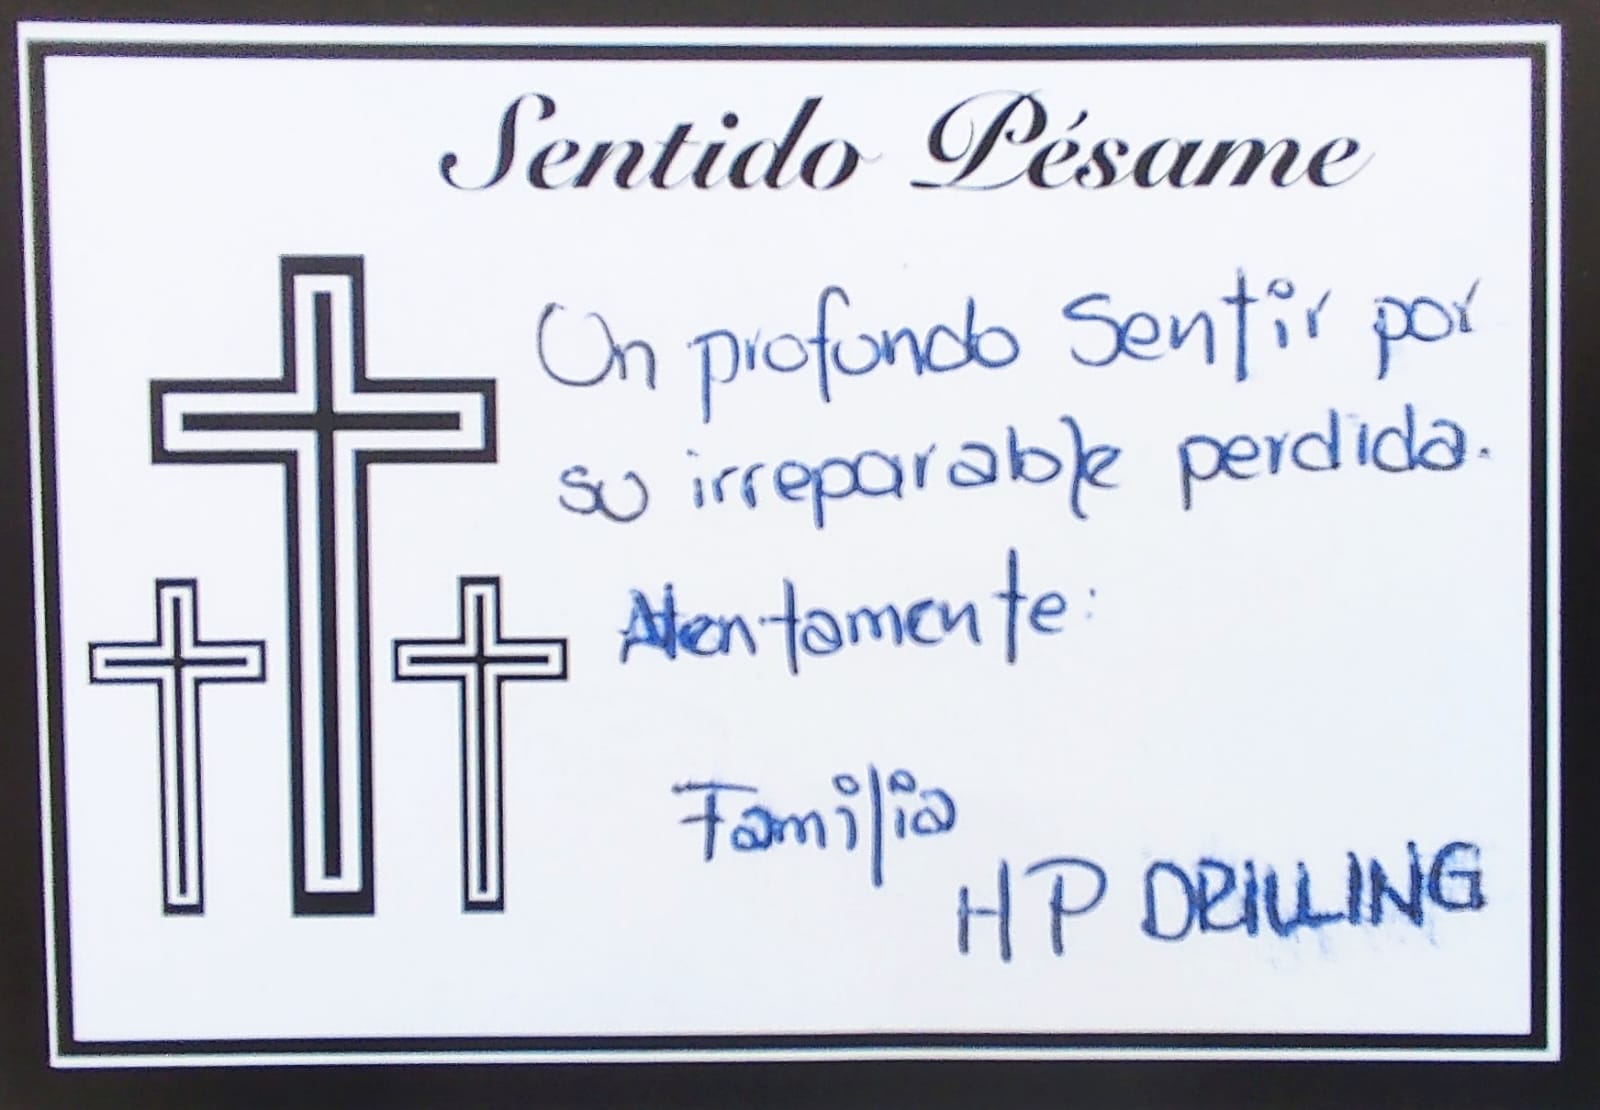 Sentido Pésame
Un profundo Sentir por
su irreparable perdida.
Atentamente:
Familia
HP DRILLING